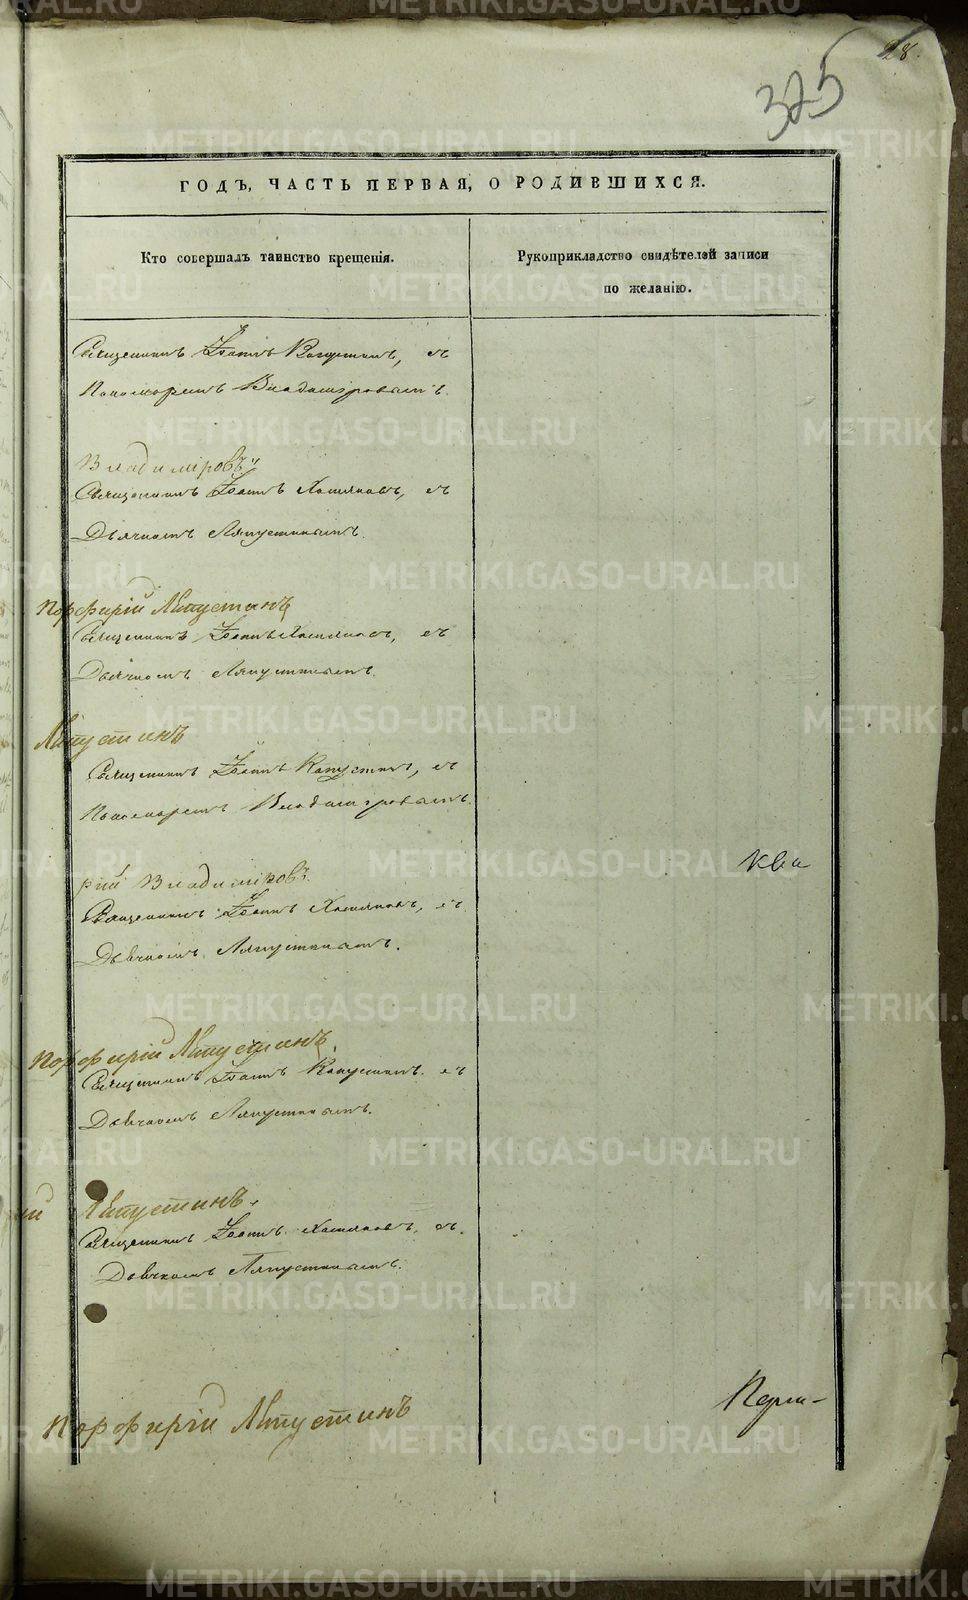 28.
325
ГОДЪ, ЧАСТЬ ПЕРВАЯ, О РОДИВШИХСЯ.
Кто совершалъ таинство крещенія.
Рукоприкладство свидѣтелей записи
по желанію.
Священникъ Іоаннъ Капустинъ, съ
Пономаремъ Владимировымъ.
Владиміровъ
Священникъ Іоаннъ Хомяковъ, съ
Дьячкомъ Ляпустинымъ.
Порфирій Ляпустинъ
Священникъ Іоаннъ Хомяковъ, съ
Дьячкомъ Ляпустинымъ.
Ляпустинъ
Священникъ Іоаннъ Капустинъ, съ
Пономаремъ Владимировымъ.
рій Владиміровъ.
Священникъ Іоаннъ Хомяковъ, съ
Дьячкомъ Ляпустинымъ.
Порфирій Ляпустинъ.
Священникъ Іоаннъ Капустинъ. съ
Дьячкомъ Ляпустинымъ.
ій Ляпустинъ.
Священникъ Іоаннъ Хомяковъ, съ
Дьячкомъ Ляпустинымъ.
Порфирій Ляпустинъ
METRIKI.GASO-URAL.RU